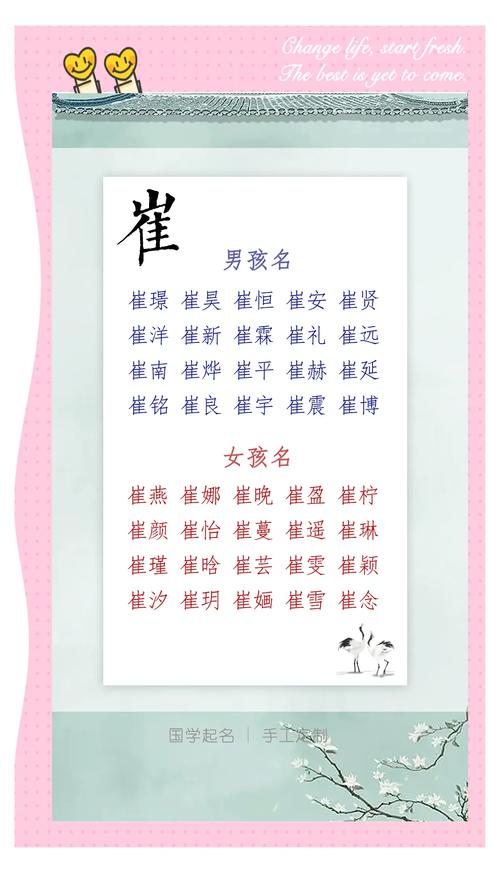 Change life, start fresh.
The best is yet to come.
崔
男孩名
崔璟 崔昊 崔恒 崔安 崔贤
崔洋 崔新 崔霖 崔礼 崔远
崔南 崔烨 崔平 崔赫 崔延
崔铭 崔良 崔宇 崔震 崔博
女孩名
崔燕 崔娜 崔晚 崔盈 崔柠
崔颜 崔怡 崔蔓 崔遥 崔琳
崔瑾 崔晗 崔芸 崔雯 崔颖
崔汐 崔玥 崔婳 崔雪 崔念
国学起名 | 手工定制